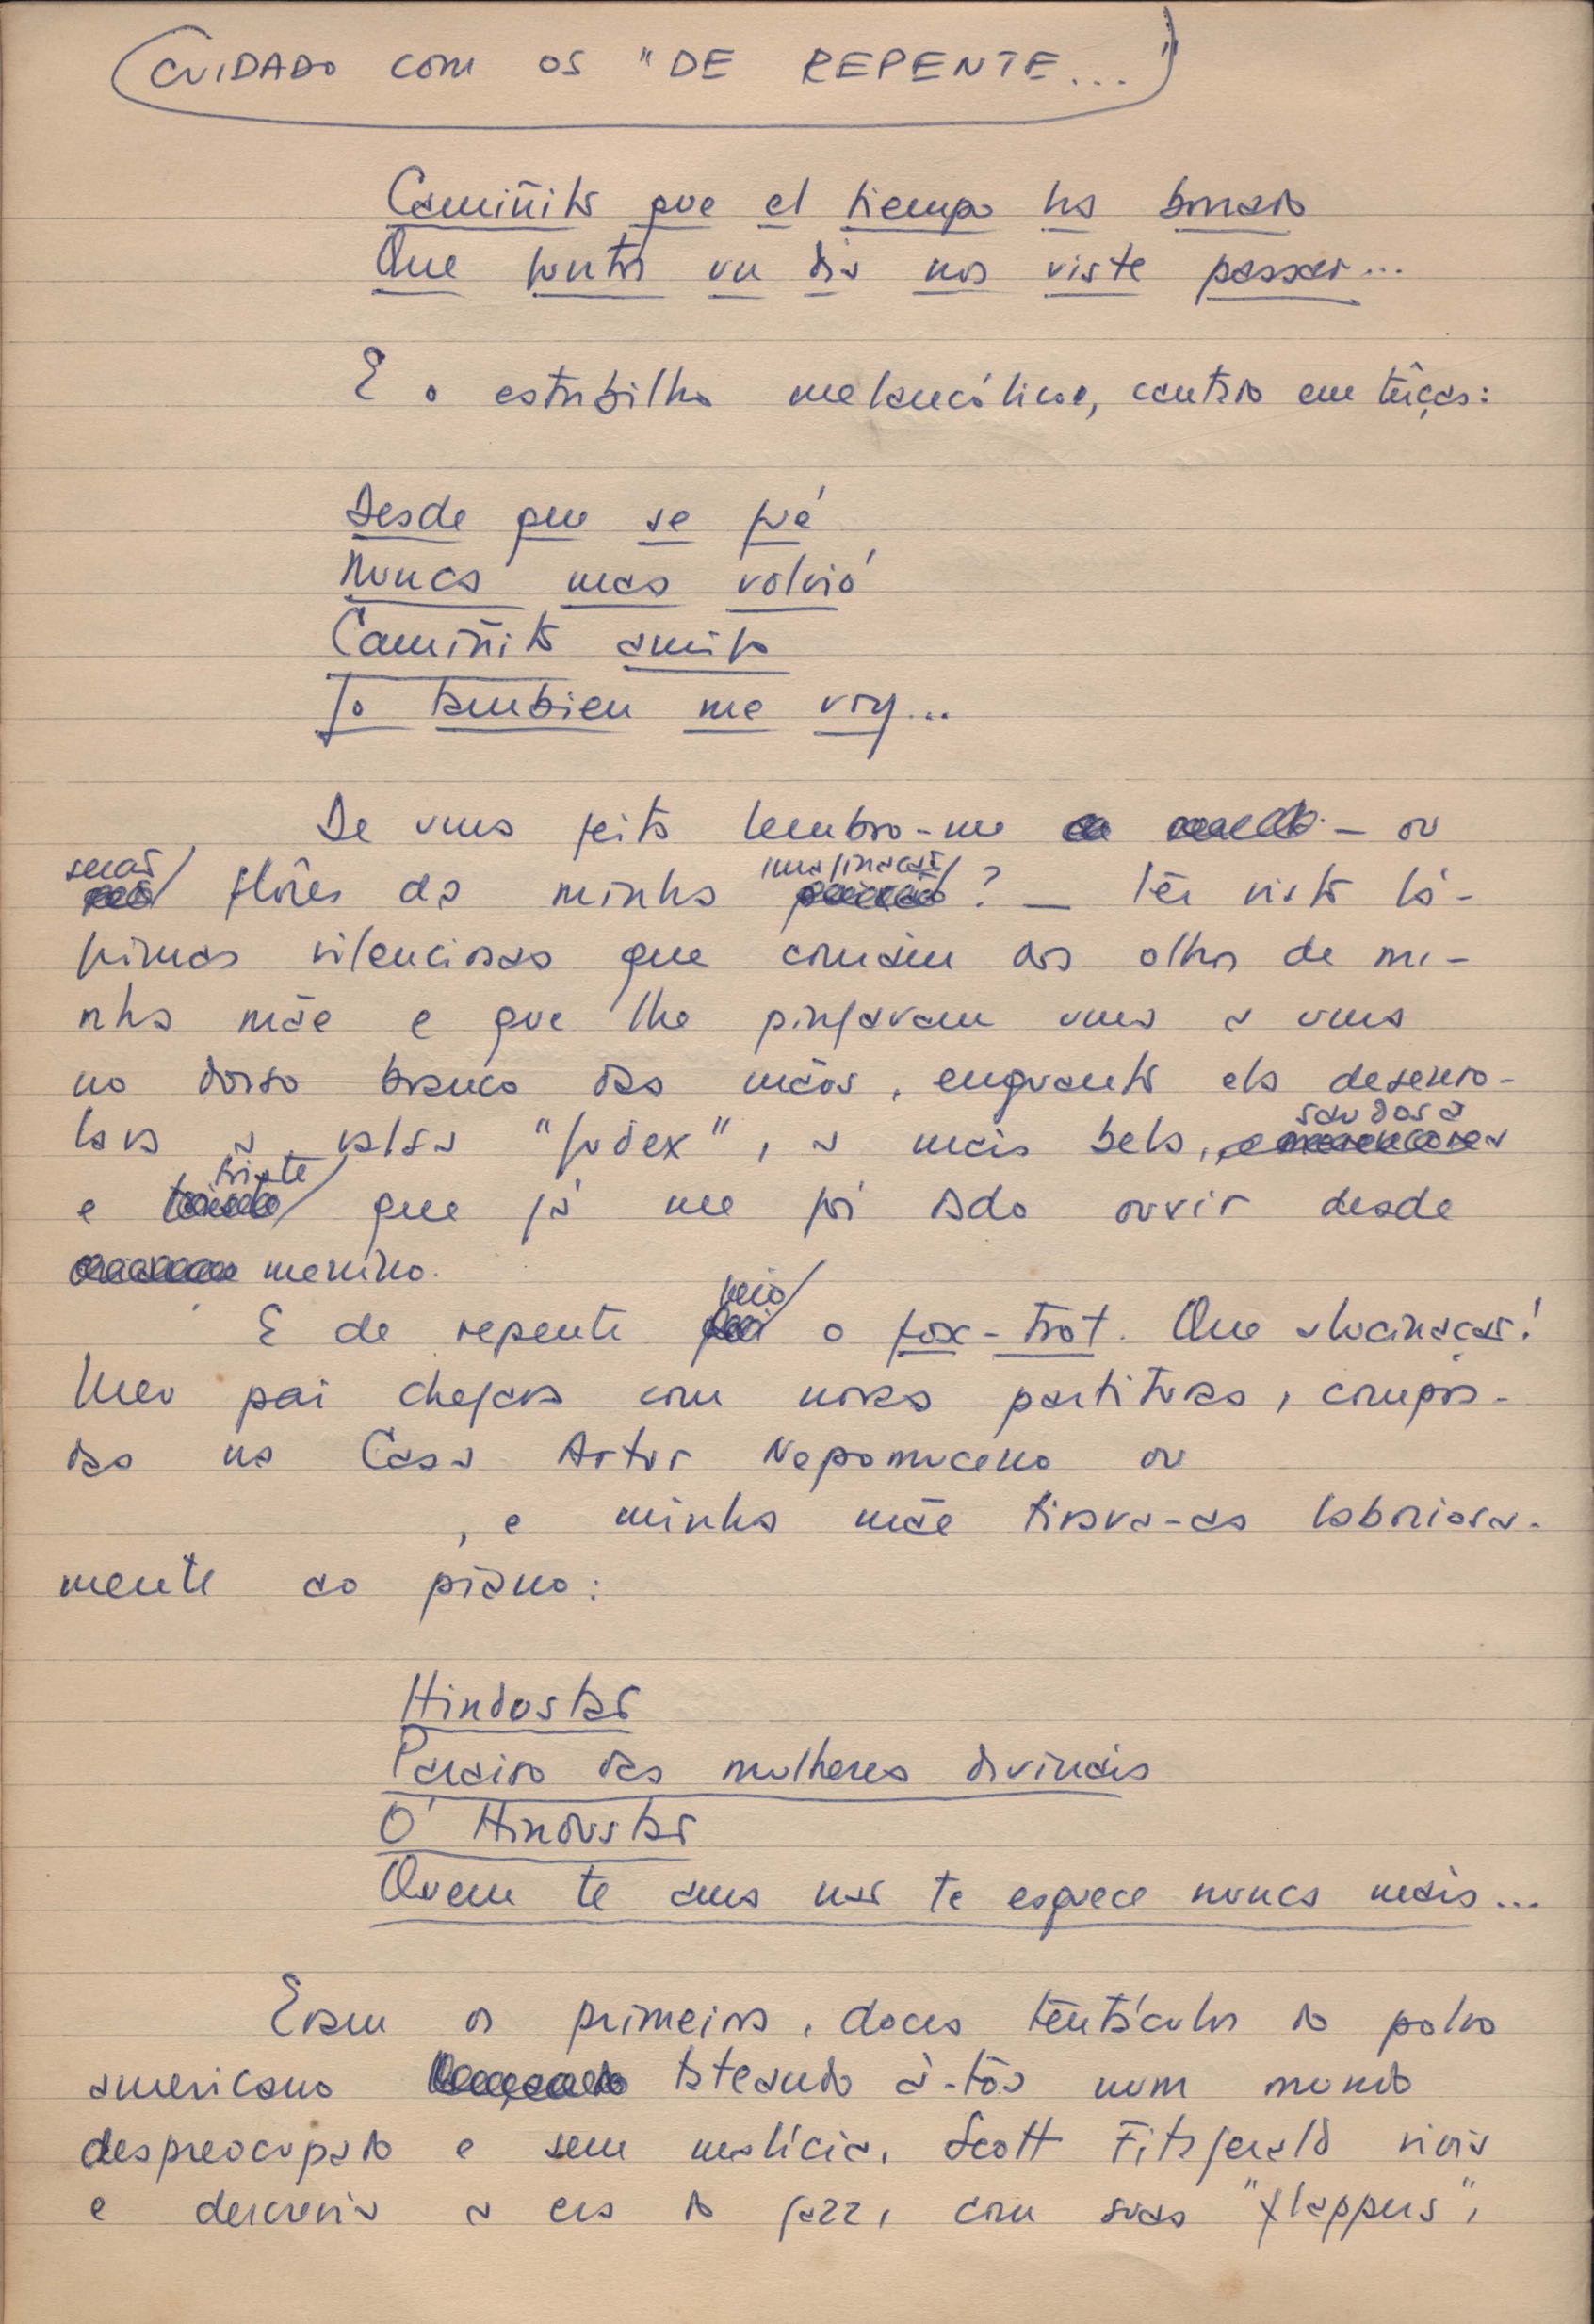 CUIDADO COM OS "DE REPENTE..."
Camiñito que el tiempo ha borrado
Que juntos un dia nos viste passar...
E o estribilho melancólico, cantado em têrças:
Desde que se fué
Nunca mas volvió
Camiñito amigo
Jo tambien me voy...
De uma feita lembro-me — ou
serão
flôres da minha imaginação? — ter visto lá-
grimas silenciosas que corriam dos olhos de mi-
nha mãe e que lhe pingavam uma a uma
no dorso branco das mãos, enquanto ela desenro-
lava a valsa "Judex", a mais bela, saudosa
e triste que já me foi dado ouvir desde
menino.
E de repente veio o fox-trot. Que alucinação!
Meu pai chegava com novas partituras, compra-
das na Casa Artur Nepomuceno ou
, e minha mãe tirava-as laboriosa-
mente ao piano:
Hindustão
Paraiso das mulheres divinais
Ó Hindustão
Quem te ama não te esquece nunca mais...
Eram os primeiros, doces tentáculos do polvo
americano tateando à-tôa num mundo
despreocupado e sem malícia. Scott Fitzgerald vivia
e descrevia a era do jazz, com suas "flappers",